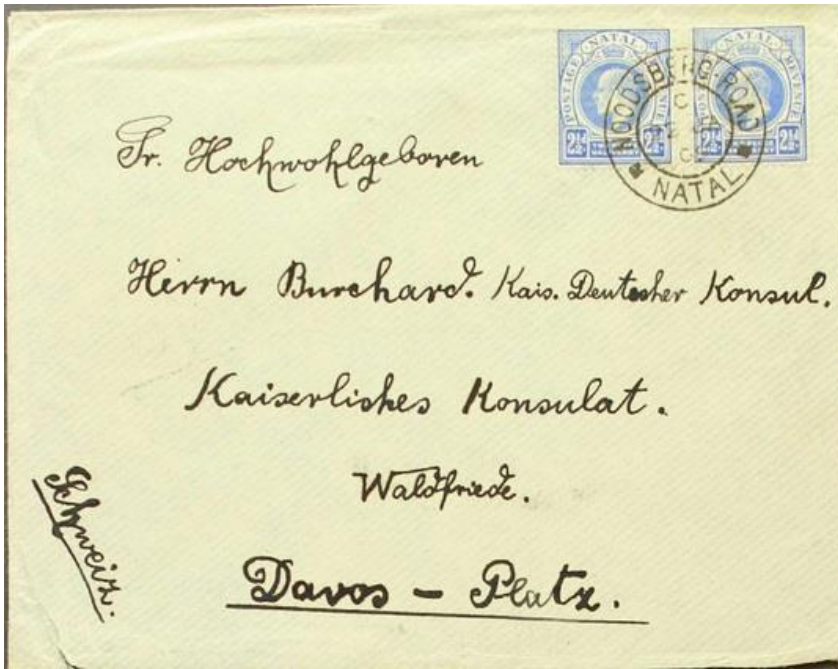 POSTAGE NATAL
2½ 2½
NATAL REVENUE
2½ 2½
NOODSBERG-ROAD
C
NATAL
Sr. Hochwohlgeboren
Herrn Burchard. Kais. Deutscher Konsul.
Kaiserliches Konsulat.
Waldfriede.
Schweiz.
Davos - Platz.